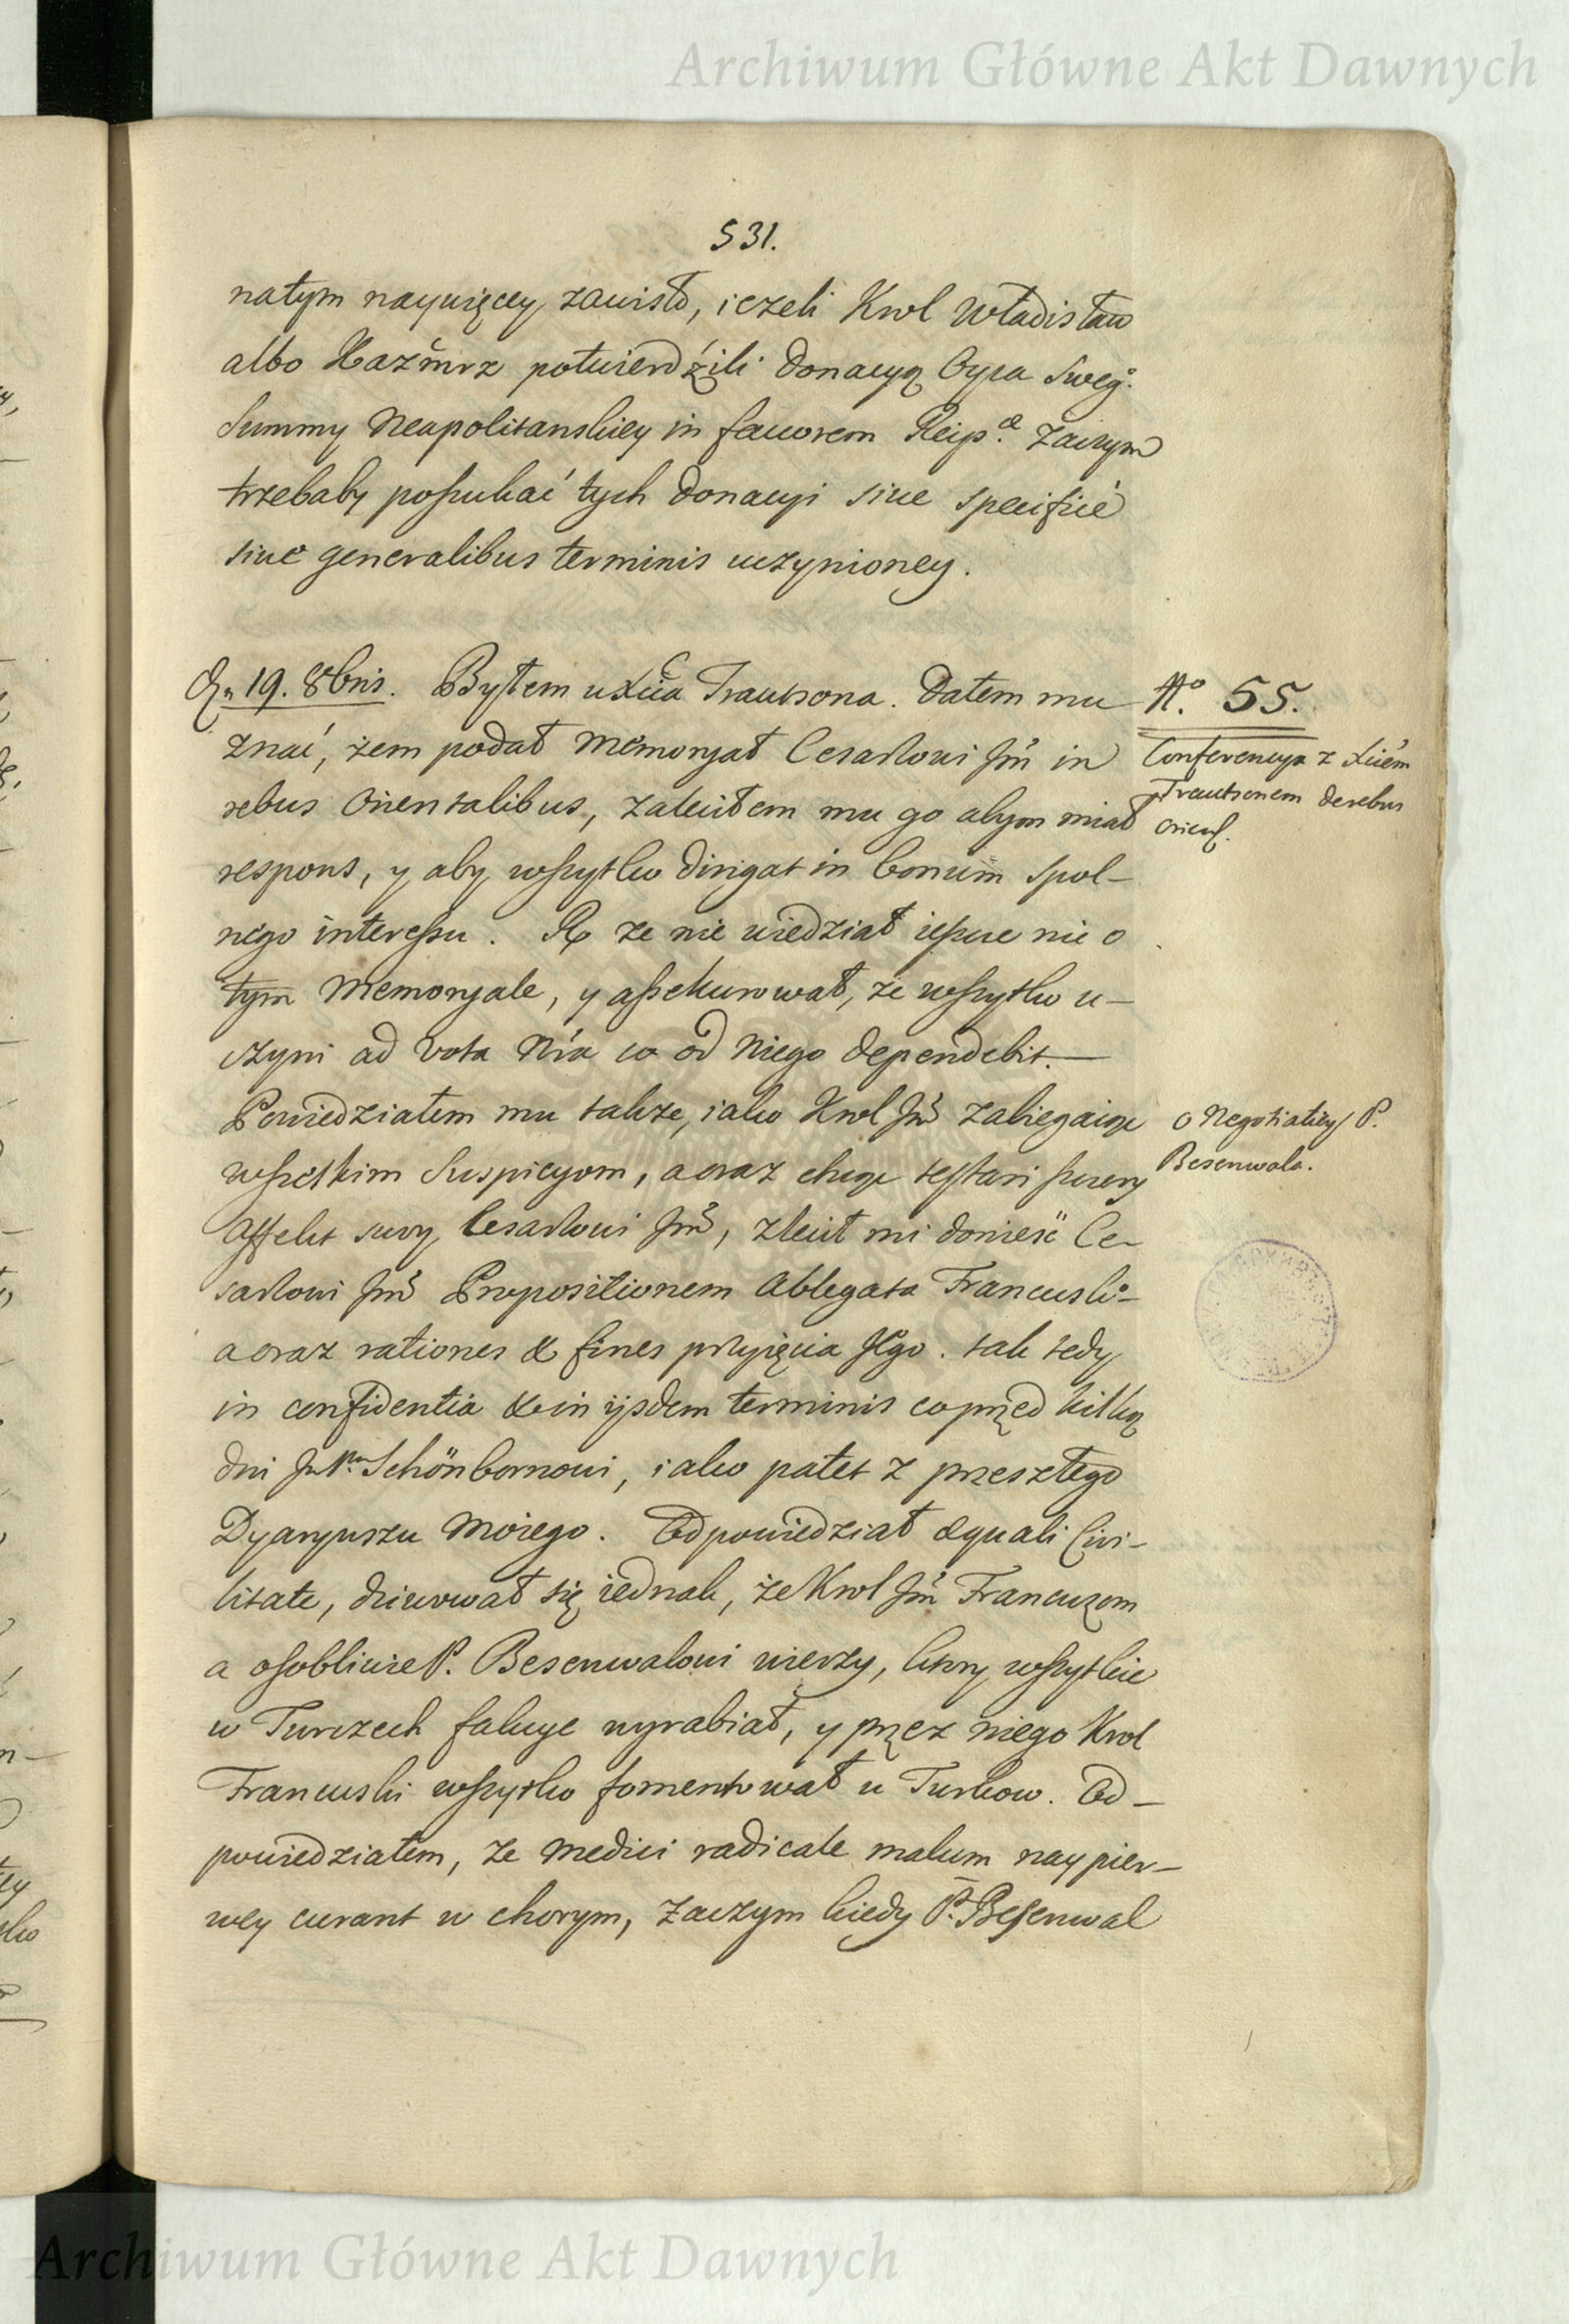 Archiwum Główne Akt Dawnych
531.
natym naywięcey zawisło, ieżeli Krol Władisław
albo Kaźmirz potwierdźili Donacyą Oyca Sweg°.
Summy Neapolitanskiey in favorem Reip.æ Zaczym
trzebaby poszukać tych Donacyi sive specificè
sive generalibus terminis uczynioney.
Dn 19. 8bris. Byłem u Xcia Trautsona. Dałem mu
znać, żem podał Memoryał Cesarłowi Jm̃ in
rebus Orientalibus, zaleciłem mu go abym miał
respons, y aby wszytko dirigat in bonum spol-
nego interessu. Rx ze nie wiedział ieszcze nic o
tym Memoryale, y assekurował, że wszytko u-
czyni ad vota Nr̃a co od Niego dependebit.
Powiedziałem mu także, iako Krol Jm̃ zabiegaiąc
wszelkim Suspicyom, a oraz chcąc testari szczery
affekt swoy Cesarłowi Jm̃, zlecił mi donieść Ce-
sarłowi Jm̃ Propositionem Ablegata Francuskº
a oraz rationes & fines przyięcia Jego. tak tedy
in confidentia & in ijsdem terminis co przed kilką
dni JmPnu Schönbornowi, iako patet z przeszłego
Dyaryuszu Moiego. Odpowiedział æquali Civi-
litate, dziwował się iednak, że Krol Jm̃ Francuzom
a osobliwie P. Besenwalowi wierzy, ktory wszytkie
w Turczech fakcye wyrabiał, y przez niego Krol
Francuski wszytko fomentował u Turkow. Od-
powiedziałem, że Medici radicale malum naypier-
wey curant w chorym, Zaczym kiedy P. Besenwal
N° 55.
Conferencya z Xciem
Trautsonem de rebus
orient.
o Negotiatiey P.
Besenwala.
Archiwum Główne Akt Dawnych